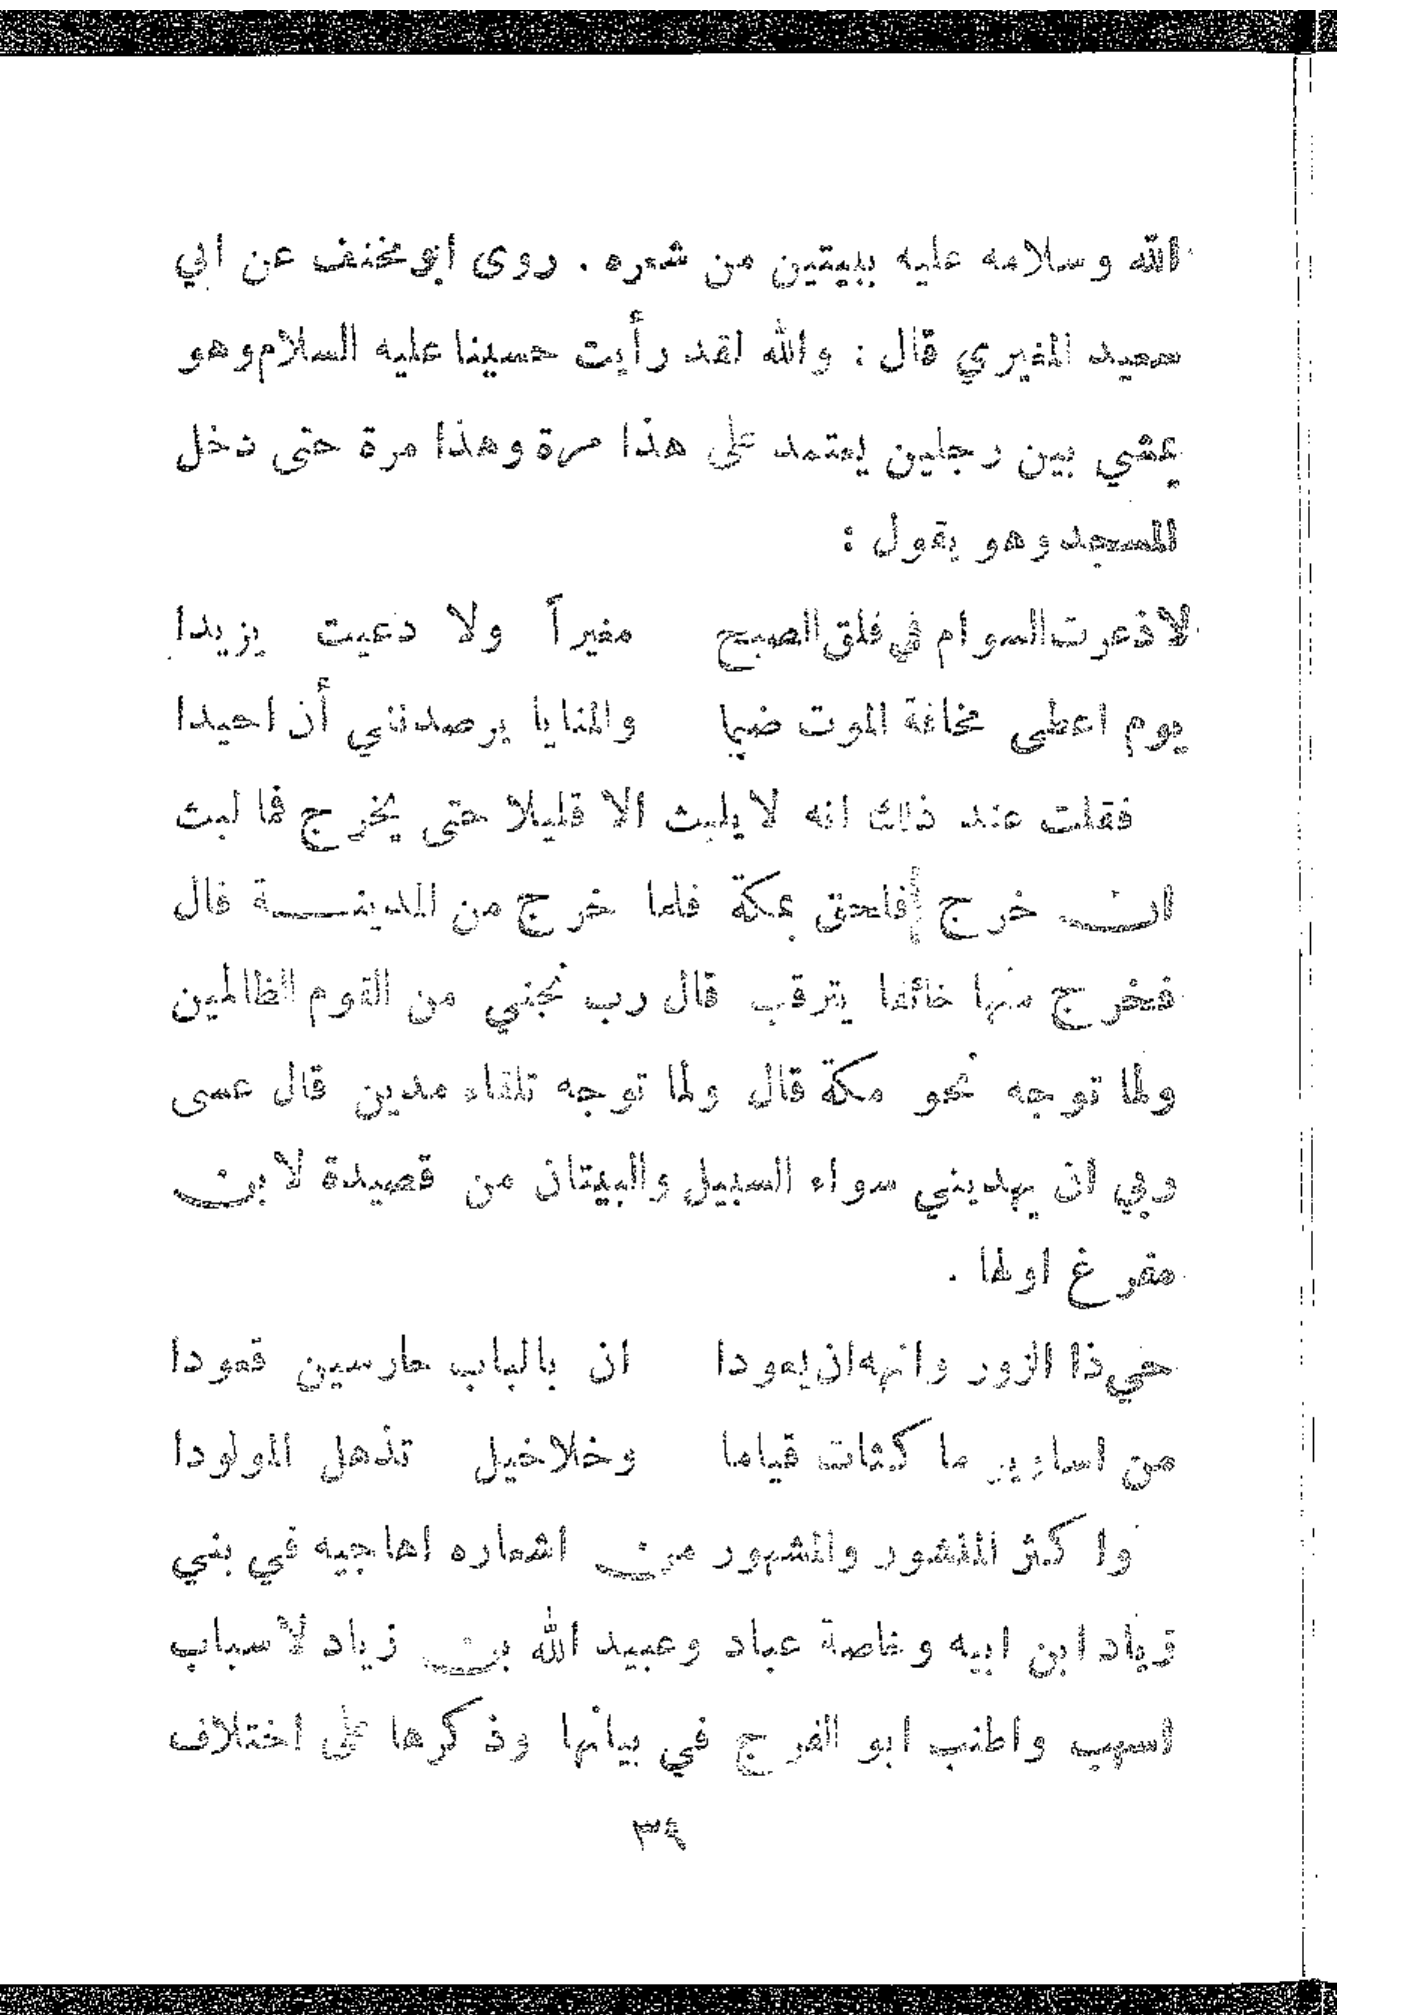 الله وسلامه عليه ببيتين من شعره . روى ابو مخنف عن ابي
سعيد المغيري قال : والله لقد رأيت حسينا عليه السلام وهو
يمشي بين رجلين يعتمد على هذا مرة وهذا مرة حتى دخل
المسجد وهو يقول :
لا ذعرت السوام في فلق الصبح مغيراً ولا دعيت يزيدا
يوم اعطى مخافة الموت ضيما والمنايا يرصدنني أن احيدا
فقلت عند ذلك انه لا يلبث الا قليلا حتى يخرج فما لبث
ان خرج فلحق بمكة فلما خرج من المدينة قال
فخرج منها خائفا يترقب قال رب نجني من القوم الظالمين
ولما توجه نحو مكة قال ولما توجه تلقاء مدين قال عسى
ربي ان يهديني سواء السبيل والبيتان من قصيدة لابن
مفرغ اولها .
حي ذا الزور وانهه ان يعودا ان بالباب حارسين قعودا
من اساوير ما كثات قياما وخلاخيل تذهل المولودا
واكثر المنشور والمشهور من اشعاره اهاجيه في بني
زياد ابن ابيه وخاصة عباد وعبيد الله بن زياد لاسباب
اسهب واطنب ابو الفرج في بيانها وذكرها على اختلاف
٣٩